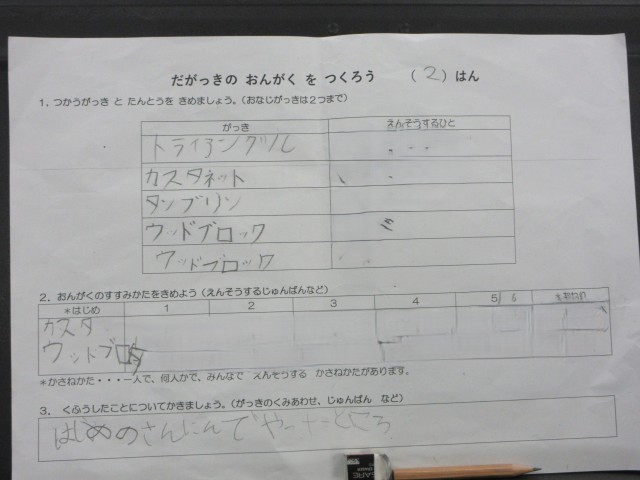 だがっきの おんがく を つくろう （ 2 ）はん
1．つかうがっき と たんとうを きめましょう。（おなじがっきは2つまで）
がっき えんそうするひと
トライアングル
カスタネット
タンブリン
ウッドブロック
ウッドブロック
2．おんがくのすすみかたをきめよう（えんそうするじゅんばんなど）
＊はじめ 1 2 3 4 5 6
カスタ
ウッドブロック
＊かさねかた・・・一人で、何人かで、みんなで えんそうする かさねかたがあります。
3． くふうしたことについてかきましょう。（がっきのくみあわせ、じゅんばん など）
はじめのさんにんでやったところ